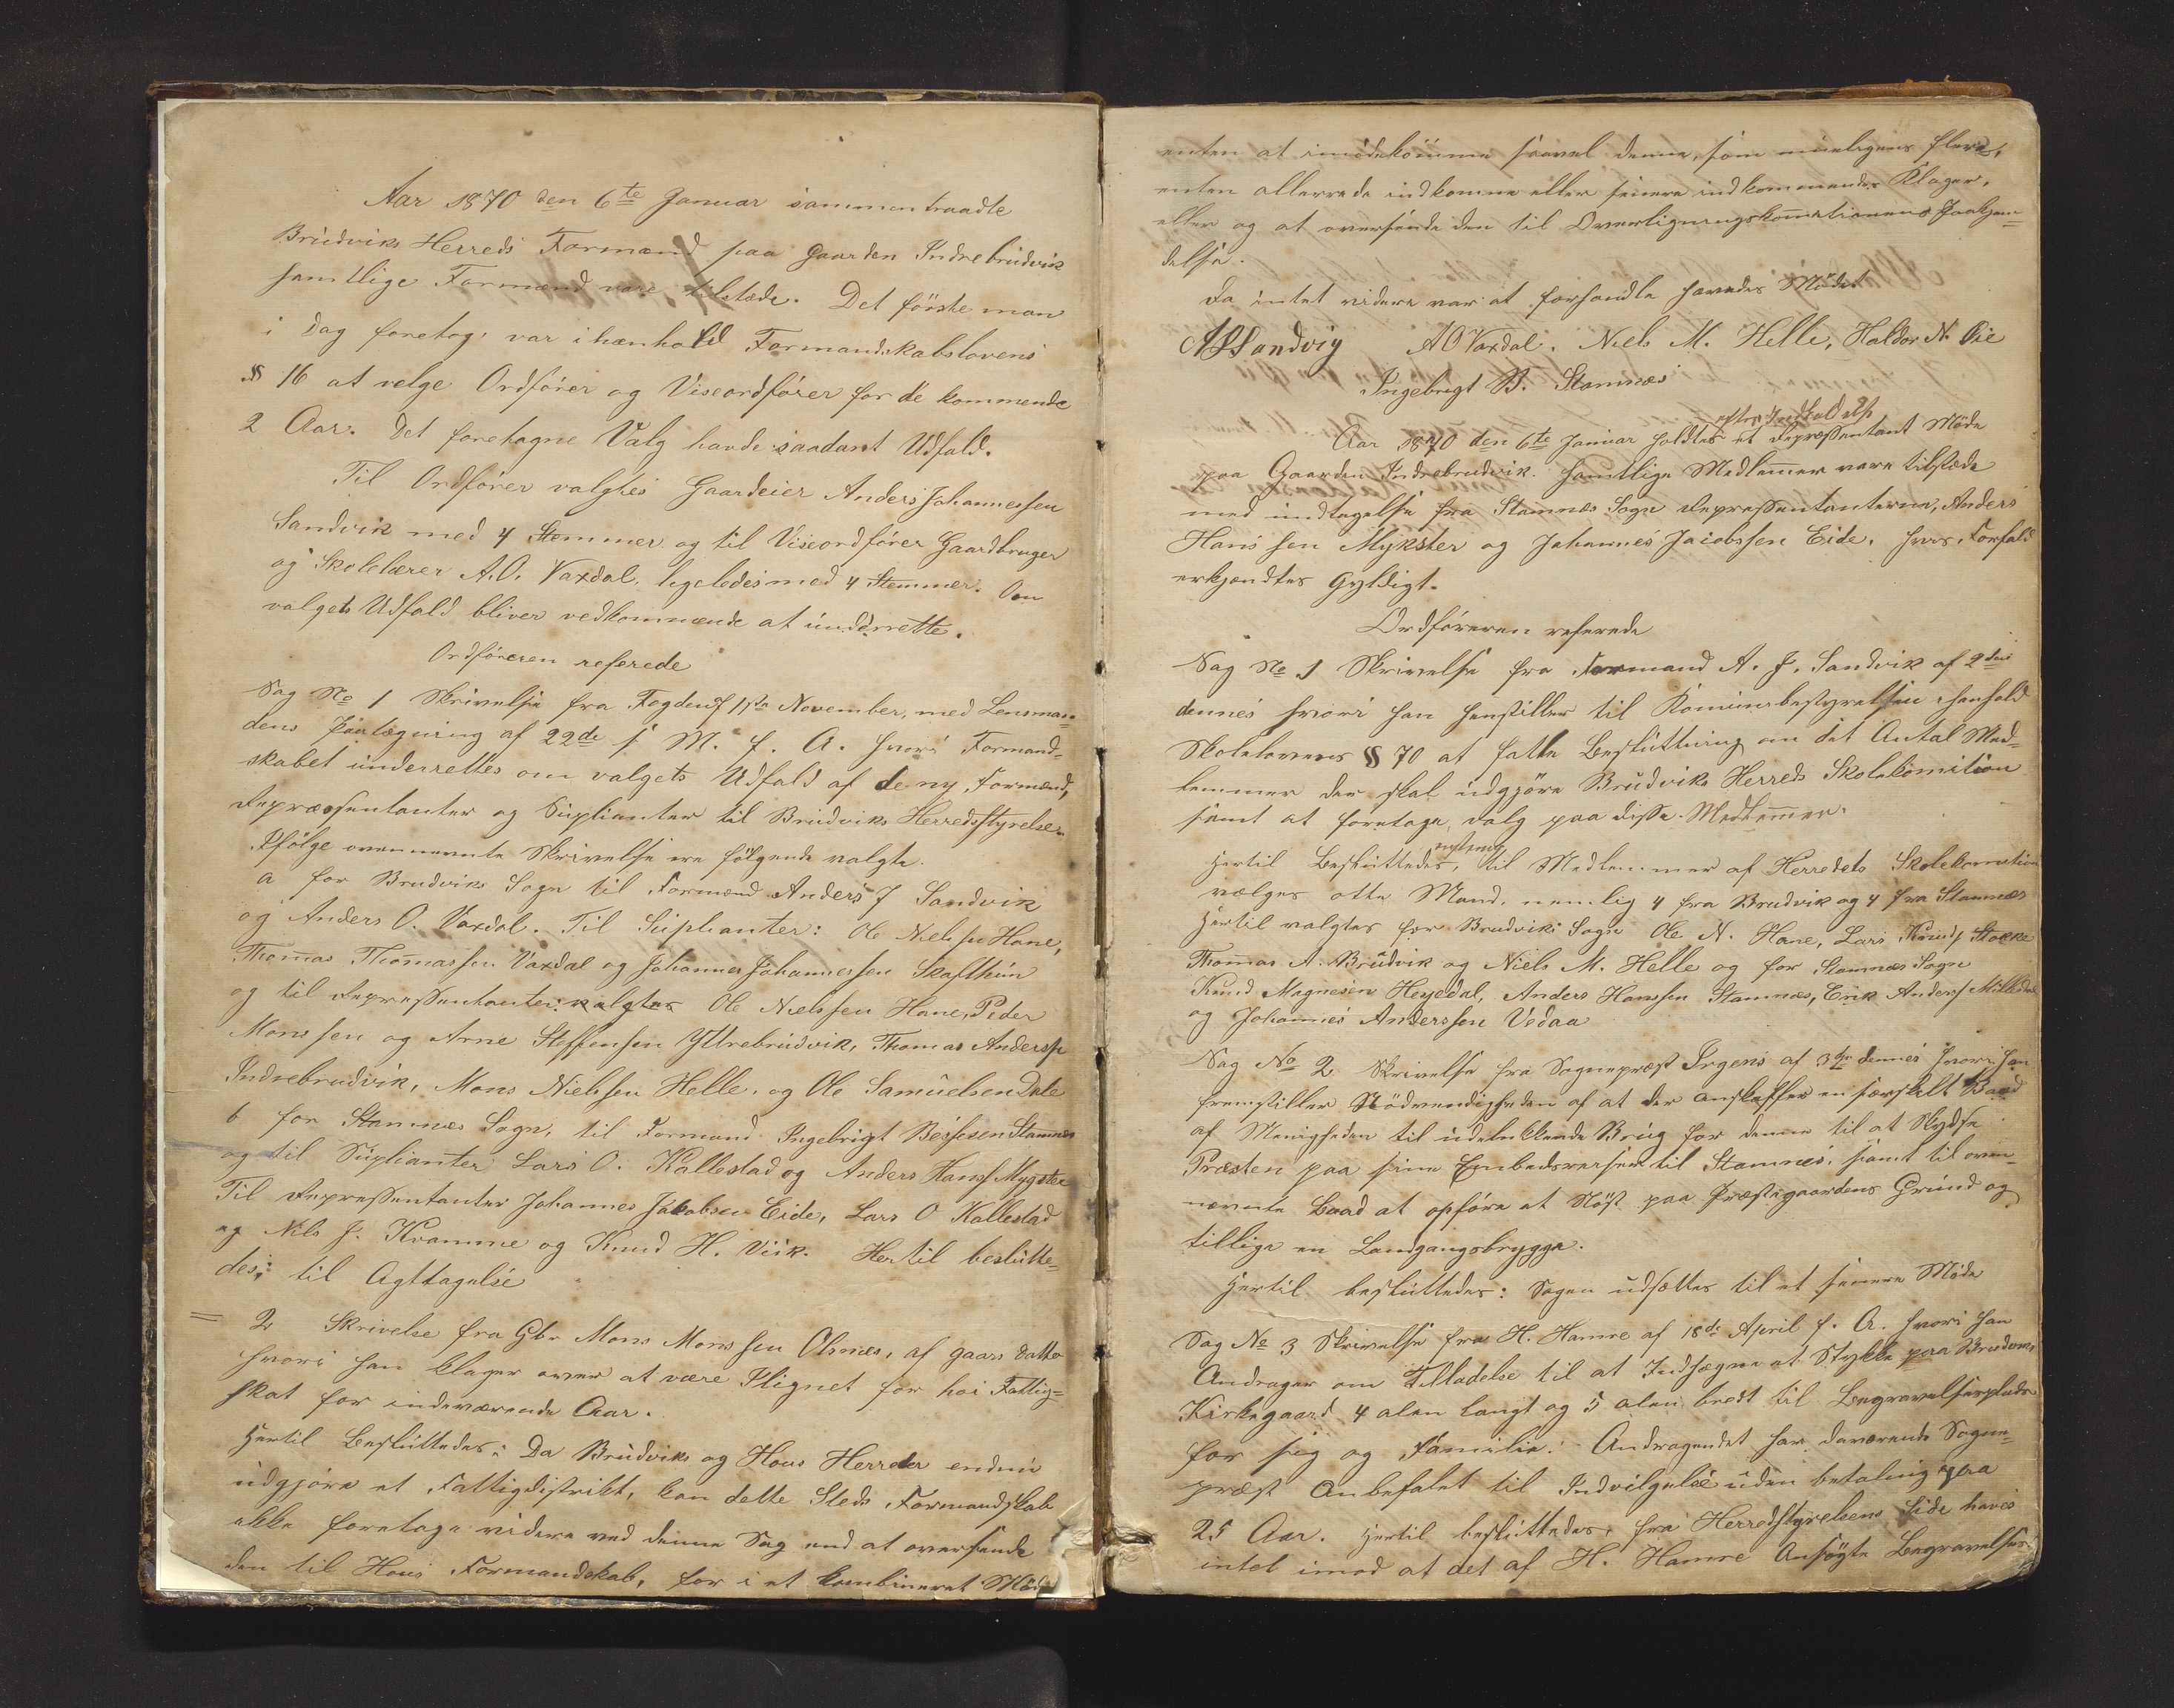 Aar 1870 den 6te Januar sammentraadte
Brudviks Herreds Formænd paa Gaarden Indrebrudvik
samtlige Formænd vare tilstede. Det förste man
i dag foretog, var ihænhold Formandskabslovens
§ 16 at velge Ordförer og Viseordförer for de kommende
2 Aar. Det foretagne Valg havde saadant Udfald.
Til Ordförer valgtes Gaardeier Anders Johannessen
Sandvik med 4 Stemmer og til Viseordförer Gaardbruger
og Skolelærer A.O. Vaxdal, legeledes med 4 Stemmer. Om
valgets Udfald bliver vedkommende at underrette.
Ordföreren referede
Sag No 1 Skrivelse fra Fogden af 11te November, med Lensman-
dens Paategning af 22de s. M. f. A. hvori Formand-
skabet underrettes om valgets Udfald af de ny Formænd,
Repræssentanter og Suplianter til Brudviks Herredsstyrelse.
Ifölge ovennevnte Skrivelse ere fölgende valgte.
a for Brudviks Sogn til Formænd Anders J Sandvik
og Anders O. Vaxdal. Til Suplianter: Ole Nielssen Hane,
Thomas Thomassen Vaxdal og Johannes Johannessen Skafthun
og til Repressentanter valgtes Ole Nielssen Hane, Peder
Monssen og Arne Steffensen Yttrebrudvik, Thomas Anderss.
Indrebrudvik, Mons Nielssen Helle, og Ole Samuelsen Dale
b for Stamnæs Sogn, til Formand Ingebrigt Stamnæs
og til Suplianter Lars O. Kallestad og Anders Hanss Mygster
Til Repressentanter Johannes Jakobsen Eide, Lars O Kallestad
og Nils J. Kramme og Knud H. Viik. Hertil beslutte-
des; til Agttagelse
= 2 Skrivelse fra Gbr Mons Monssen Olsnæs, af gaars Datto
hvori han klager over at være Ilignet for høi Fattig-
skat for indeværende Aar.
Hertil Besluttedes: Da Brudviks og Hous Herreder endnu
udgjøre et Fattigdistrikt, kan dette Steds Formandskab
ikke foretage videre ved denne Sag end at oversende
den til Hous Formandskab, for i et kombineret Möde
enten at imödekomme saavel denne, som muligens flere,
enten allerede indkomne eller senere indkommendes Klager,
eller og at oversende den til Overligningskommitionens Paakjen-
delse.
Da intet videre var at forhandle hævedes Mödet
AJSandvig AOVaxdal. Niels M. Helle, Haldor N. Öie
Ingebrigt B. Stamnæs
efter Indkaldelse
Aar 1870 den 6te Januar holdtes et Repressentant Möde
paa Gaarden Indrebrudvik. Samtlige Medlemmer vare tilstede
med undtagelse fra Stamnæs Sogn Repressentanterne, Anders
Hanssen Mykster og Johannes Jacobssen Eide, hvis Forfald
erkjendtes Gyldigt.
Ordföreren referede
Sag No 1 Skrivelse fra Formand A. J. Sandvik af 2den
dennes hvori han henstiller til Komunebestyrelsen ihenhold
Skolelovens § 70 at fatte Beslutning om det Antal Med-
lemmer der skal udgjöre Brudviks Herreds Skolekomition
samt at foretage valg paa disse Medlemmer.
Hertil Besluttedes, til Medlemmer af Herredets Skolekomition
vælges otte Mand, nemlig 4 fra Brudvik og 4 fra Stamnæs
Hertil valgtes for Brudviks Sogn Ole N. Hane, Lars Knuds Stokke
Thomas A. Brudvik og Niels M. Helle og for Stamnæs Sogn
Knud Magnesen Hesjedal, Anders Hanssen Stamnæs, Erik Anderss
og Johannes Anderssen Vedaa
Sag No 2 Skrivelse fra Sognepræst Irgens af 3die dennes hvori han
fremstiller Nödvendigheden af at der anskaffes en særskilt Baad
af Menigheden til udelukkende Brug for denne til at Skydse
Præsten paa sine Embedsreiser til Stamnes, samt til oven-
nevnte Baad at opföre et Nöst paa Præstegaardens Grund og
tillige en Landgangsbrygge.
Hertil besluttedes: Sagen udsættes til et senere Möde
Sag No 3 Skrivelse fra H. Hamre af 18de April f. A. hvori han
Andrager om Tilladelse til at Indhegne et Stykke paa Brudviks
Kirkegaard 4 alen langt og 5 alen bredt til Begravelsesplads
for sig og Familie. Andragendet har daværende Sogne-
præst Anbefalet til Indvilgelse uden betaling paa
25 Aar. Hertil besluttedes, fra Herredsstyrelsens Side haves
intet imod at det af H. Hamre Ansögte Begravelses-